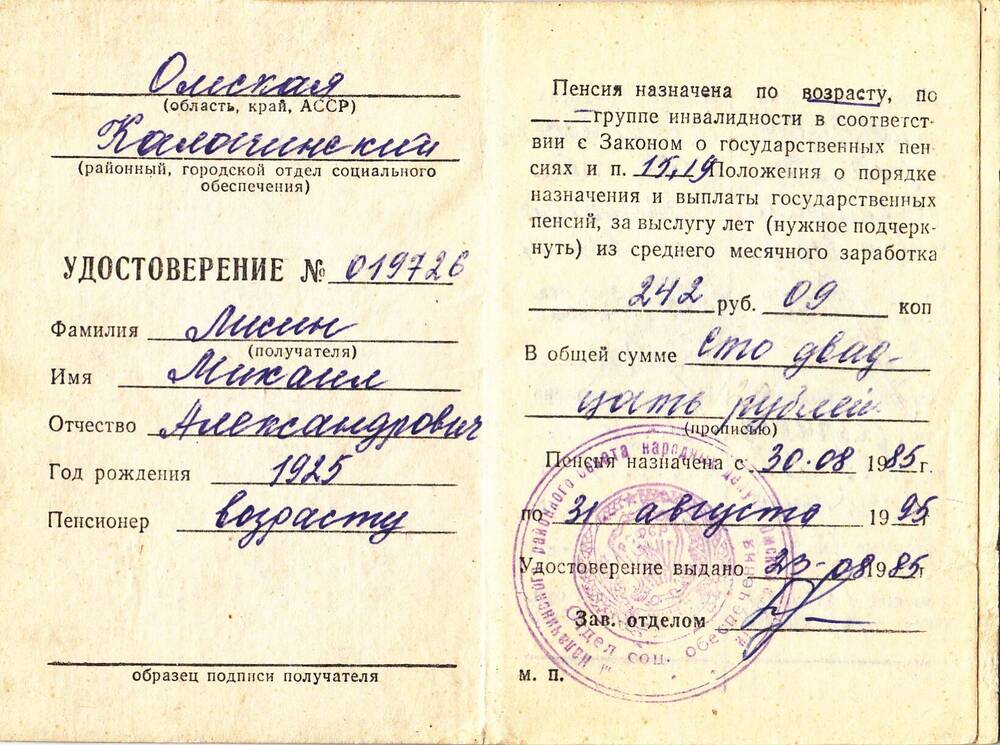 Омская
(область, край, АССР)
Калачинский
(районный, городской отдел социального
обеспечения)
УДОСТОВЕРЕНИЕ № 019726
Фамилия Лисин
(получателя)
Имя Михаил
Отчество Александрович
Год рождения 1925
Пенсионер возрасту
образец подписи получателя
Пенсия назначена по возрасту, по
группе инвалидности в соответст-
вии с Законом о государственных пен
сиях и п. 15,19 Положения о порядке
назначения и выплаты государственных
пенсий, за выслугу лет (нужное подчерк-
нуть) из среднего месячного заработка
242 руб. 09 коп
В общей сумме Сто двад-
цать рублей
(прописью)
Пенсия назначена с 30.08 1985г.
по 31 августа 1995г
Удостоверение выдано 23-08 1985г
Зав. отделом
м. п.
Отдел соц. обеспечения
районного совета народных